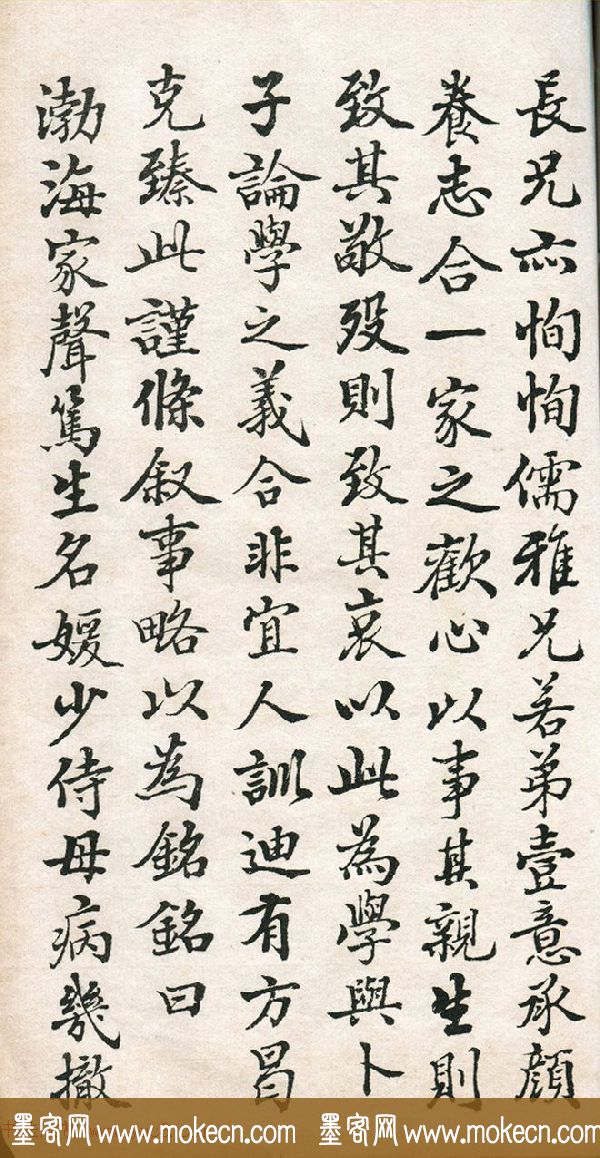 長兄亦恂恂儒雅兄若弟壹意承顔
養志合一家之歡心以事其親生則
致其敬歿則致其哀以此為學與卜
子論學之義合非宜人訓迪有方曷
克臻此謹條叙事略以為銘銘曰
渤海家聲篤生名媛少侍母病幾撤
墨客网 www.mokecn.com 墨客网 www.mokecn.com